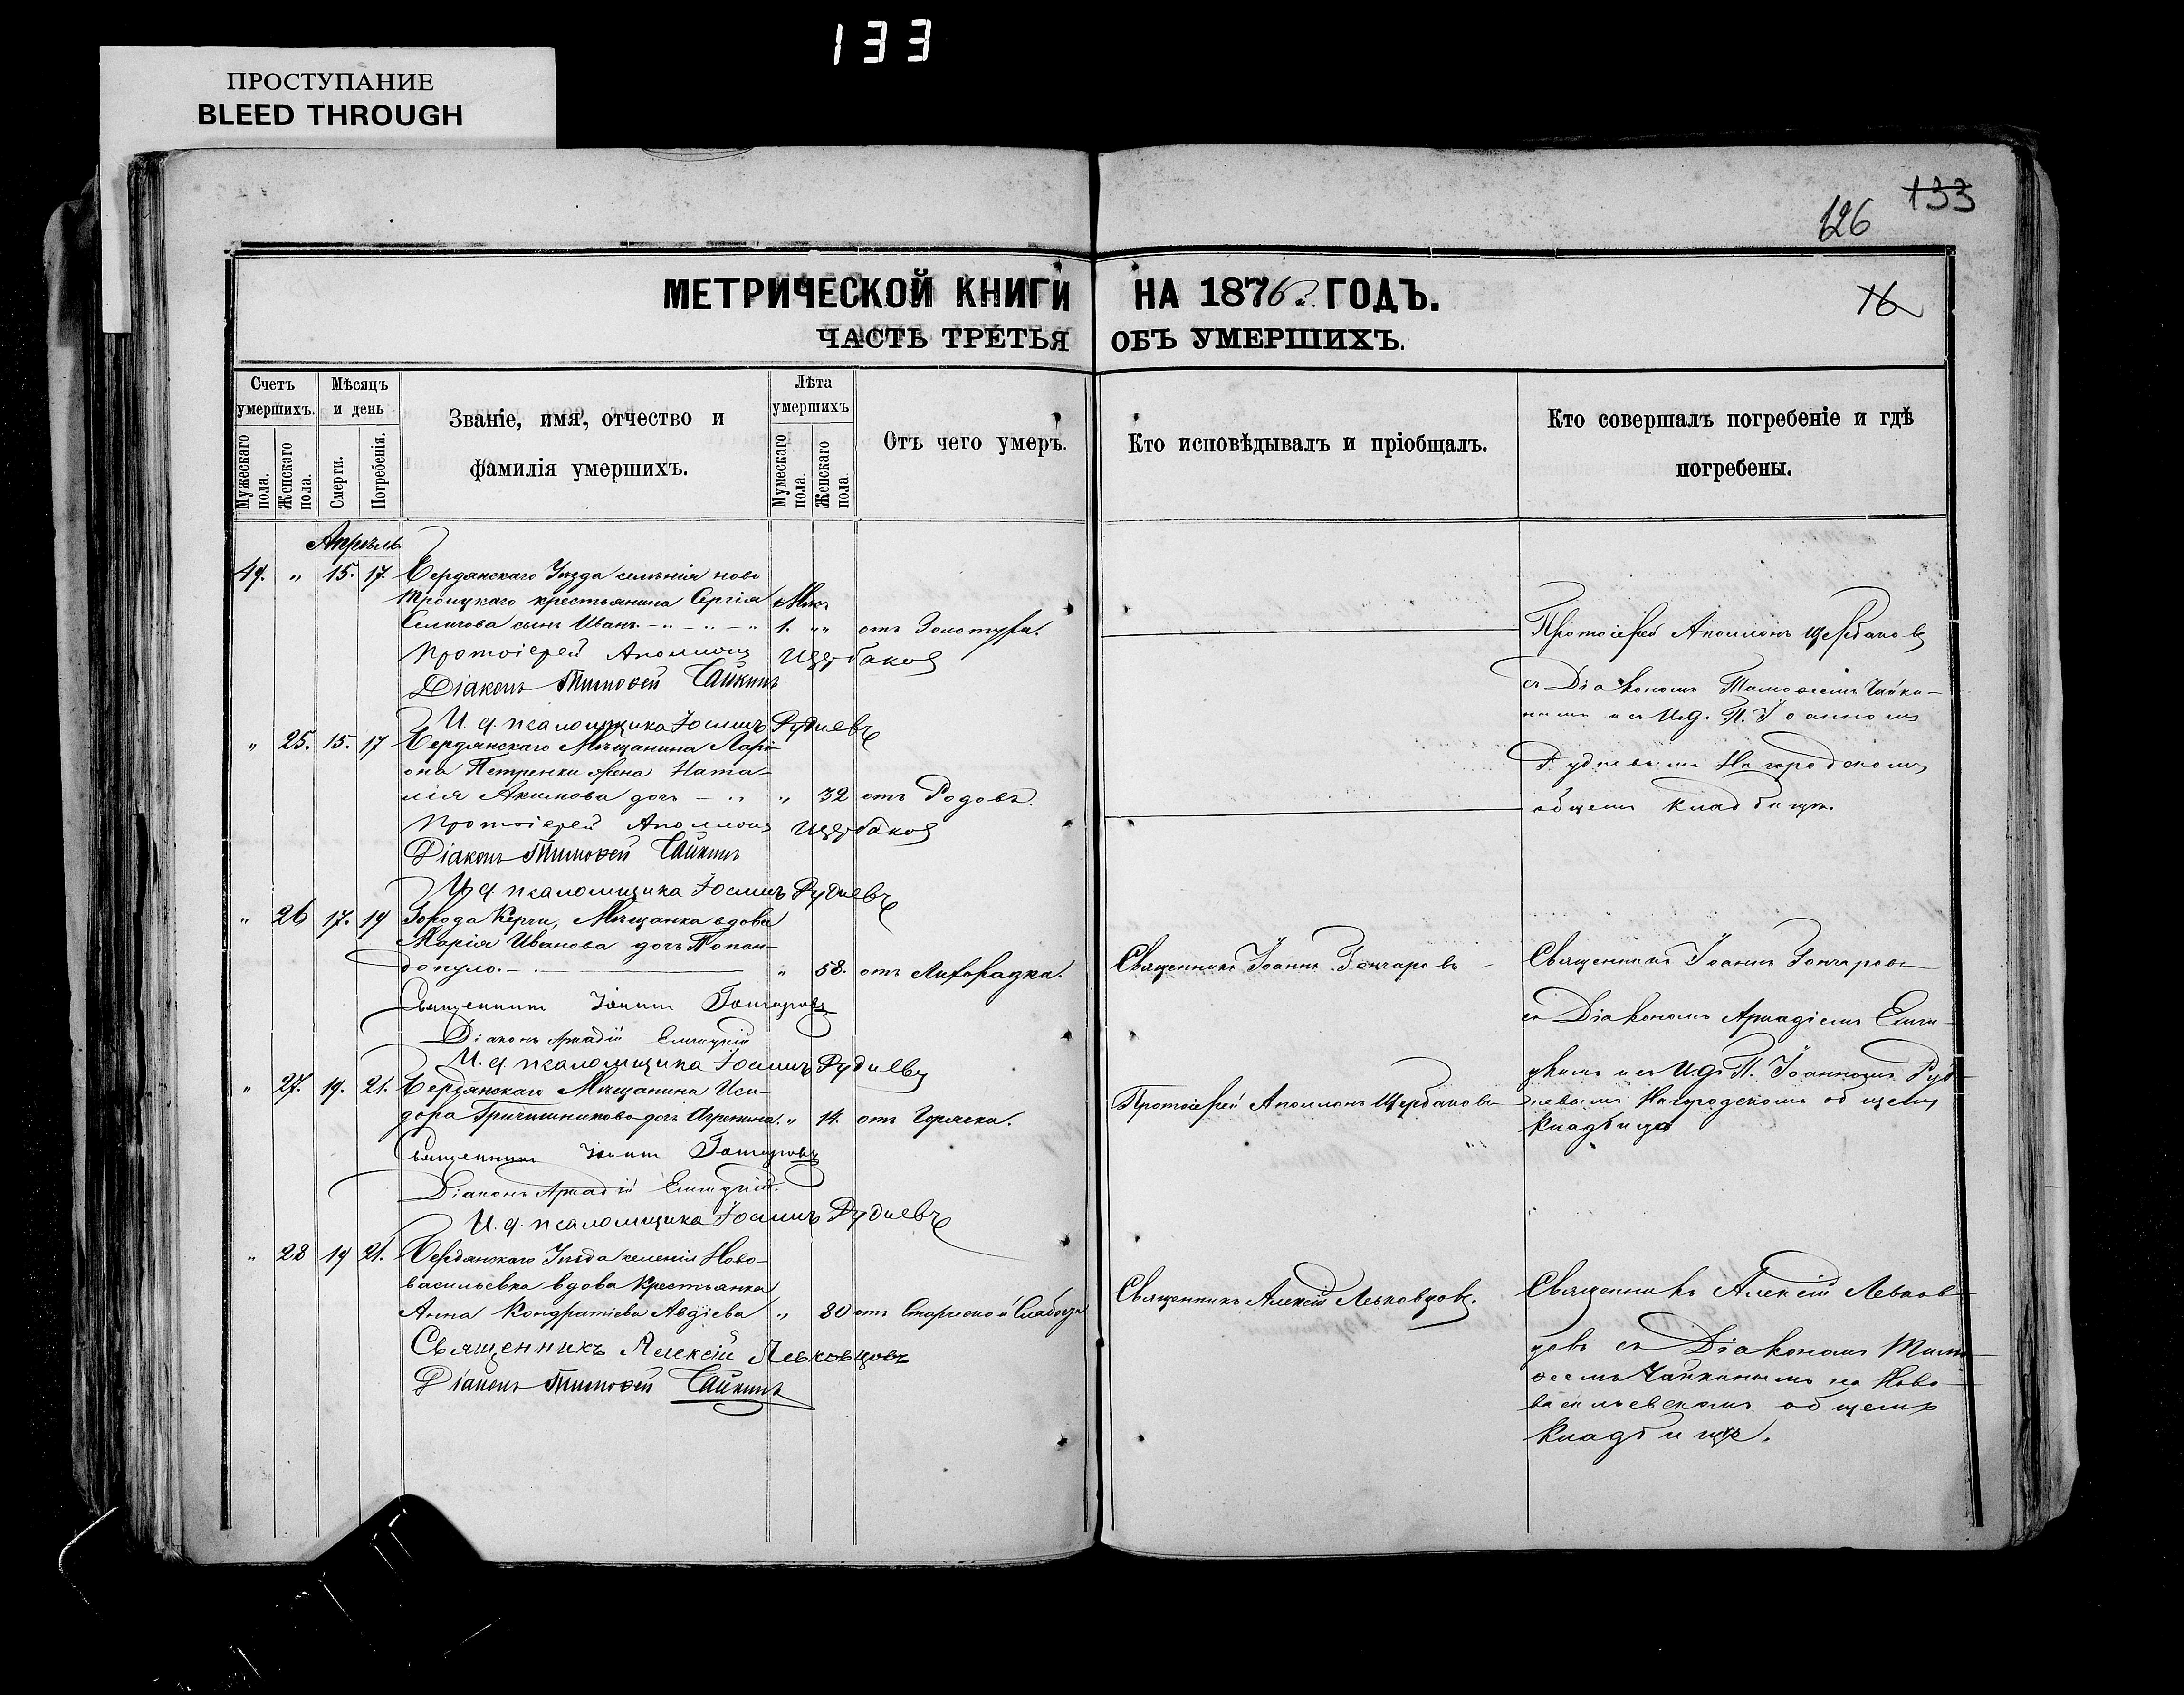 133
ПРОСТУПАНИЕ
BLEED THROUGH
133
126
16
МЕТРИЧЕСКОЙ КНИГИ НА 1876 г. ГОДЪ.
ЧАСТЬ ТРЕТЬЯ ОБЪ УМЕРШИХЪ.
Счетъ умершихъ.
Мужескаго пола.
Женскаго пола.
Мѣсяцъ и день
Смерти.
Погребенія.
Званіе, имя, отчество и
фамилія умершихъ.
Лѣта умершихъ
Мужескаго пола.
Женскаго пола.
Отъ чего умеръ.
Кто исповѣдывалъ и пріобщалъ.
Кто совершалъ погребеніе и гдѣ
погребены.
Апрѣль
49. " 15. 17. Бердянскаго Уѣзда селенія ново
троицкаго крестьянина Сергія
сынъ Иванъ. 1. " отъ Золотухи.
Протоіерей Аполлонъ Щербаковъ
Діаконъ Тимофей Чайкинъ
И. д. псаломщика Іоаннъ Рудневъ
Протоіерей Аполлонъ Щербаковъ
съ Діакономъ Тимофеемъ Чайки-
нымъ и съ И.д. П. Іоанномъ
Рудневымъ На городскомъ
общемъ кладбищѣ.
" 25. 15. 17 Бердянскаго Мѣщанина Ларі-
она Петренки жена Ната-
лія Акимова дочь " 32 отъ Родовъ.
Протоіерей Аполлонъ Щербаковъ
Діаконъ Тимофей Чайкинъ
И. д. псаломщика Іоаннъ Рудневъ
" 26 17. 19 Города Керчи, Мѣщанка вдова
Марія Иванова дочь Попан-
допуло. " 58. отъ Лихорадки.
Священникъ Іоаннъ Гончаровъ
Діаконъ Аркадій
И. д. псаломщика Іоаннъ Рудневъ
Священникъ Іоаннъ Гончаровъ
Священникъ Іоаннъ Гончаровъ
съ Діакономъ Аркадіемъ
и съ И.д. П. Іоанномъ Руд-
невымъ На городскомъ общемъ
Кладбищѣ
" 27. 19. 21. Бердянскаго Мѣщанина Иси-
дора дочь " 14. отъ Горячки.
Священникъ Іоаннъ Гончаровъ
Діаконъ Аркадій
И. д. псаломщика Іоаннъ Рудневъ
Протоіерей Аполлонъ Щербаковъ
" 28 19 21. Бердянскаго Уѣзда селенія Ново-
васильевка вдова Крестьянка
Анна Кондратіева Авдіева " 80 отъ Старческой Слабости
Священникъ Алексій Левковцовъ
Діаконъ Тимофей Чайкинъ
Священникъ Алексій Левковцовъ.
Священникъ Алексій Левков-
цовъ съ Діакономъ Тимо-
феемъ Чайкинымъ на Ново-
васильевскомъ общемъ
Кладбищѣ.